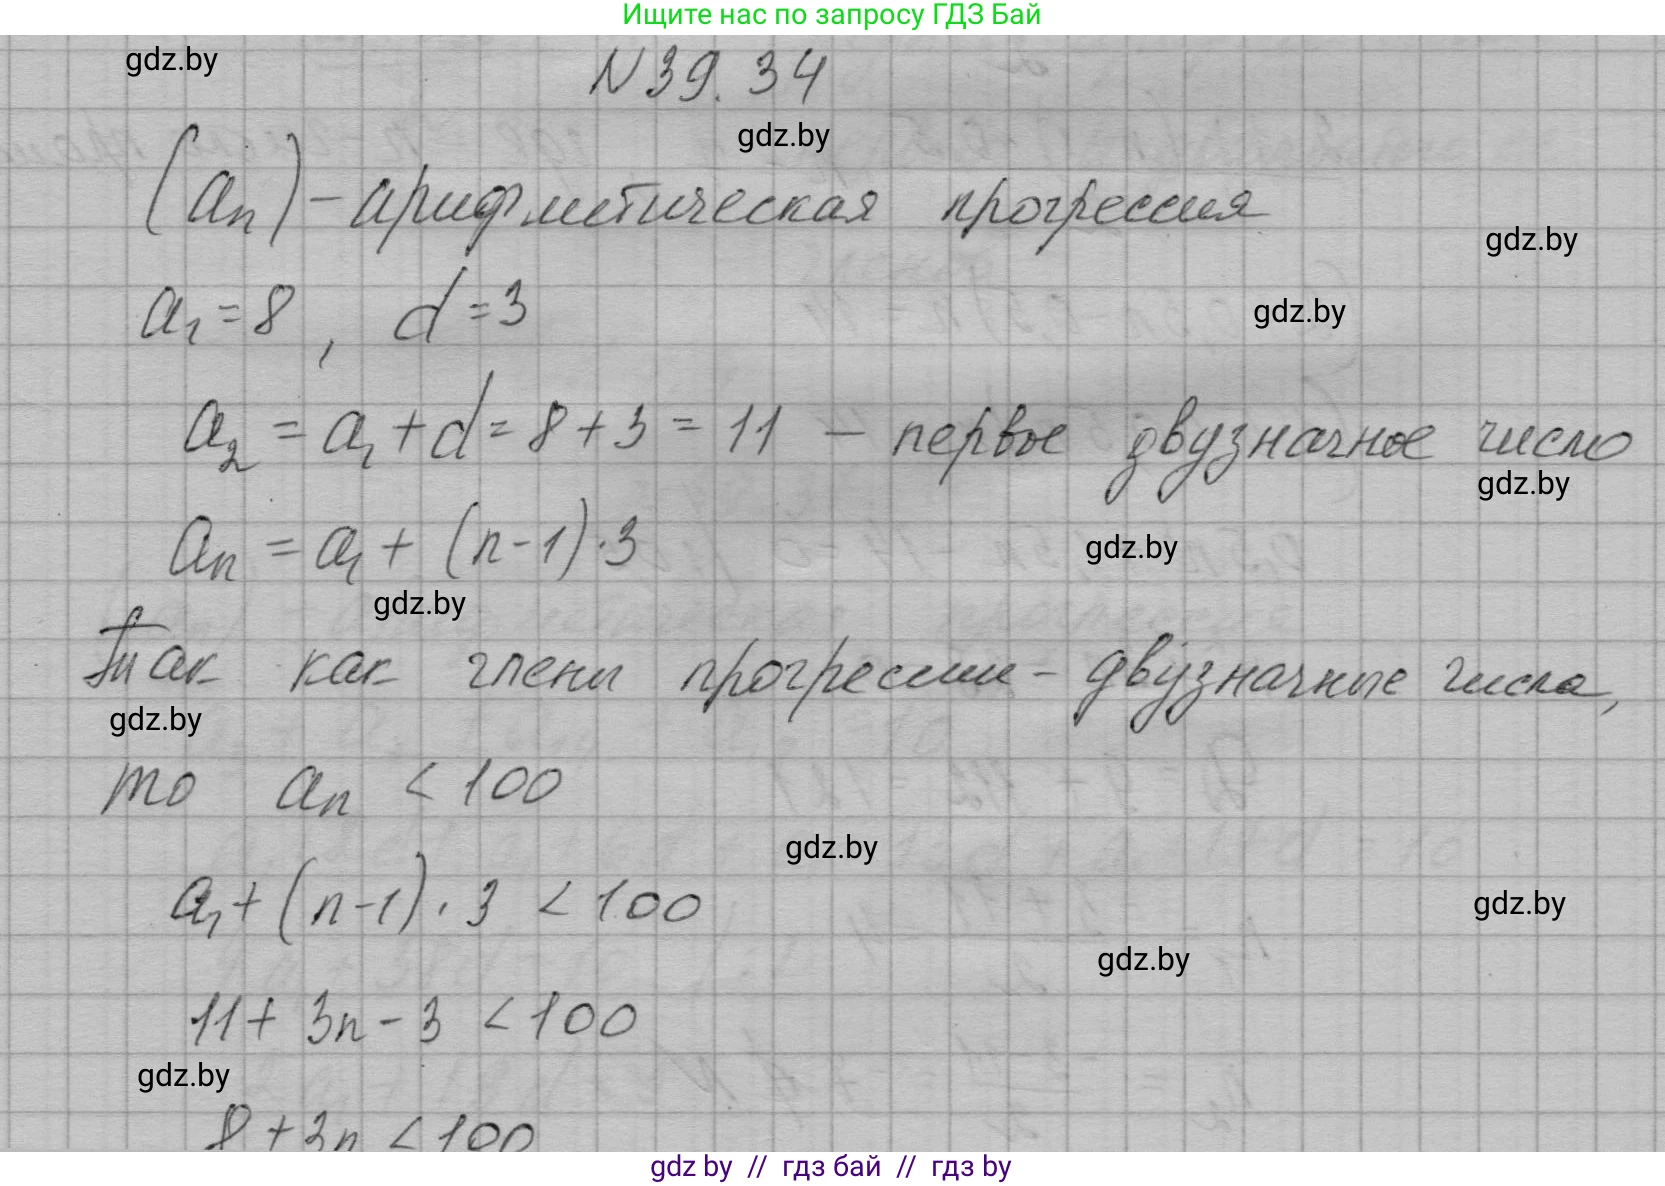 Ищите нас по запросу ГДЗ Бай
gdz.by
N39.34
gdz.by
(aₙ) - арифметическая прогрессия
gdz.by
a₁ = 8, d = 3
gdz.by
a₂ = a₁ + d = 8 + 3 = 11 - первое двузначное число
gdz.by
aₙ = a₁ + (n-1)·3
gdz.by
gdz.by
Так как члены прогрессии - двузначные числа,
gdz.by
то aₙ < 100
gdz.by
a₁ + (n-1)·3 < 100
gdz.by
gdz.by
11 + 3n - 3 < 100
gdz.by
8 + 3n < 100
gdz by // гдз бай // гдз by